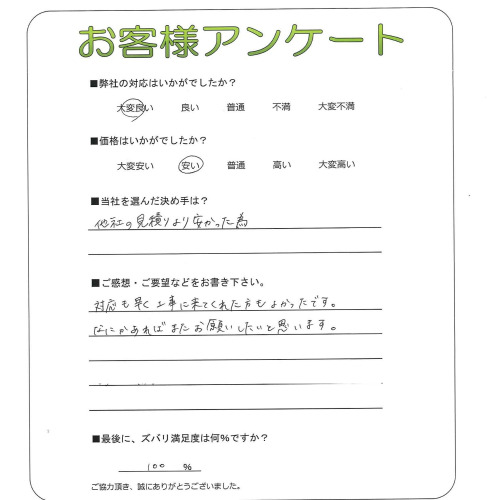 お客様アンケート
■弊社の対応はいかがでしたか？
大変良い 良い 普通 不満 大変不満
■価格はいかがでしたか？
大変安い 安い 普通 高い 大変高い
■当社を選んだ決め手は？
他社の見積りより安かった為
■ご感想・ご要望などをお書き下さい。
対応も早く工事に来てくれた方もよかったです。
なにかあればまたお願いしたいと思います。
■最後に、ズバリ満足度は何％ですか？
100 ％
ご協力頂き、誠にありがとうございました。